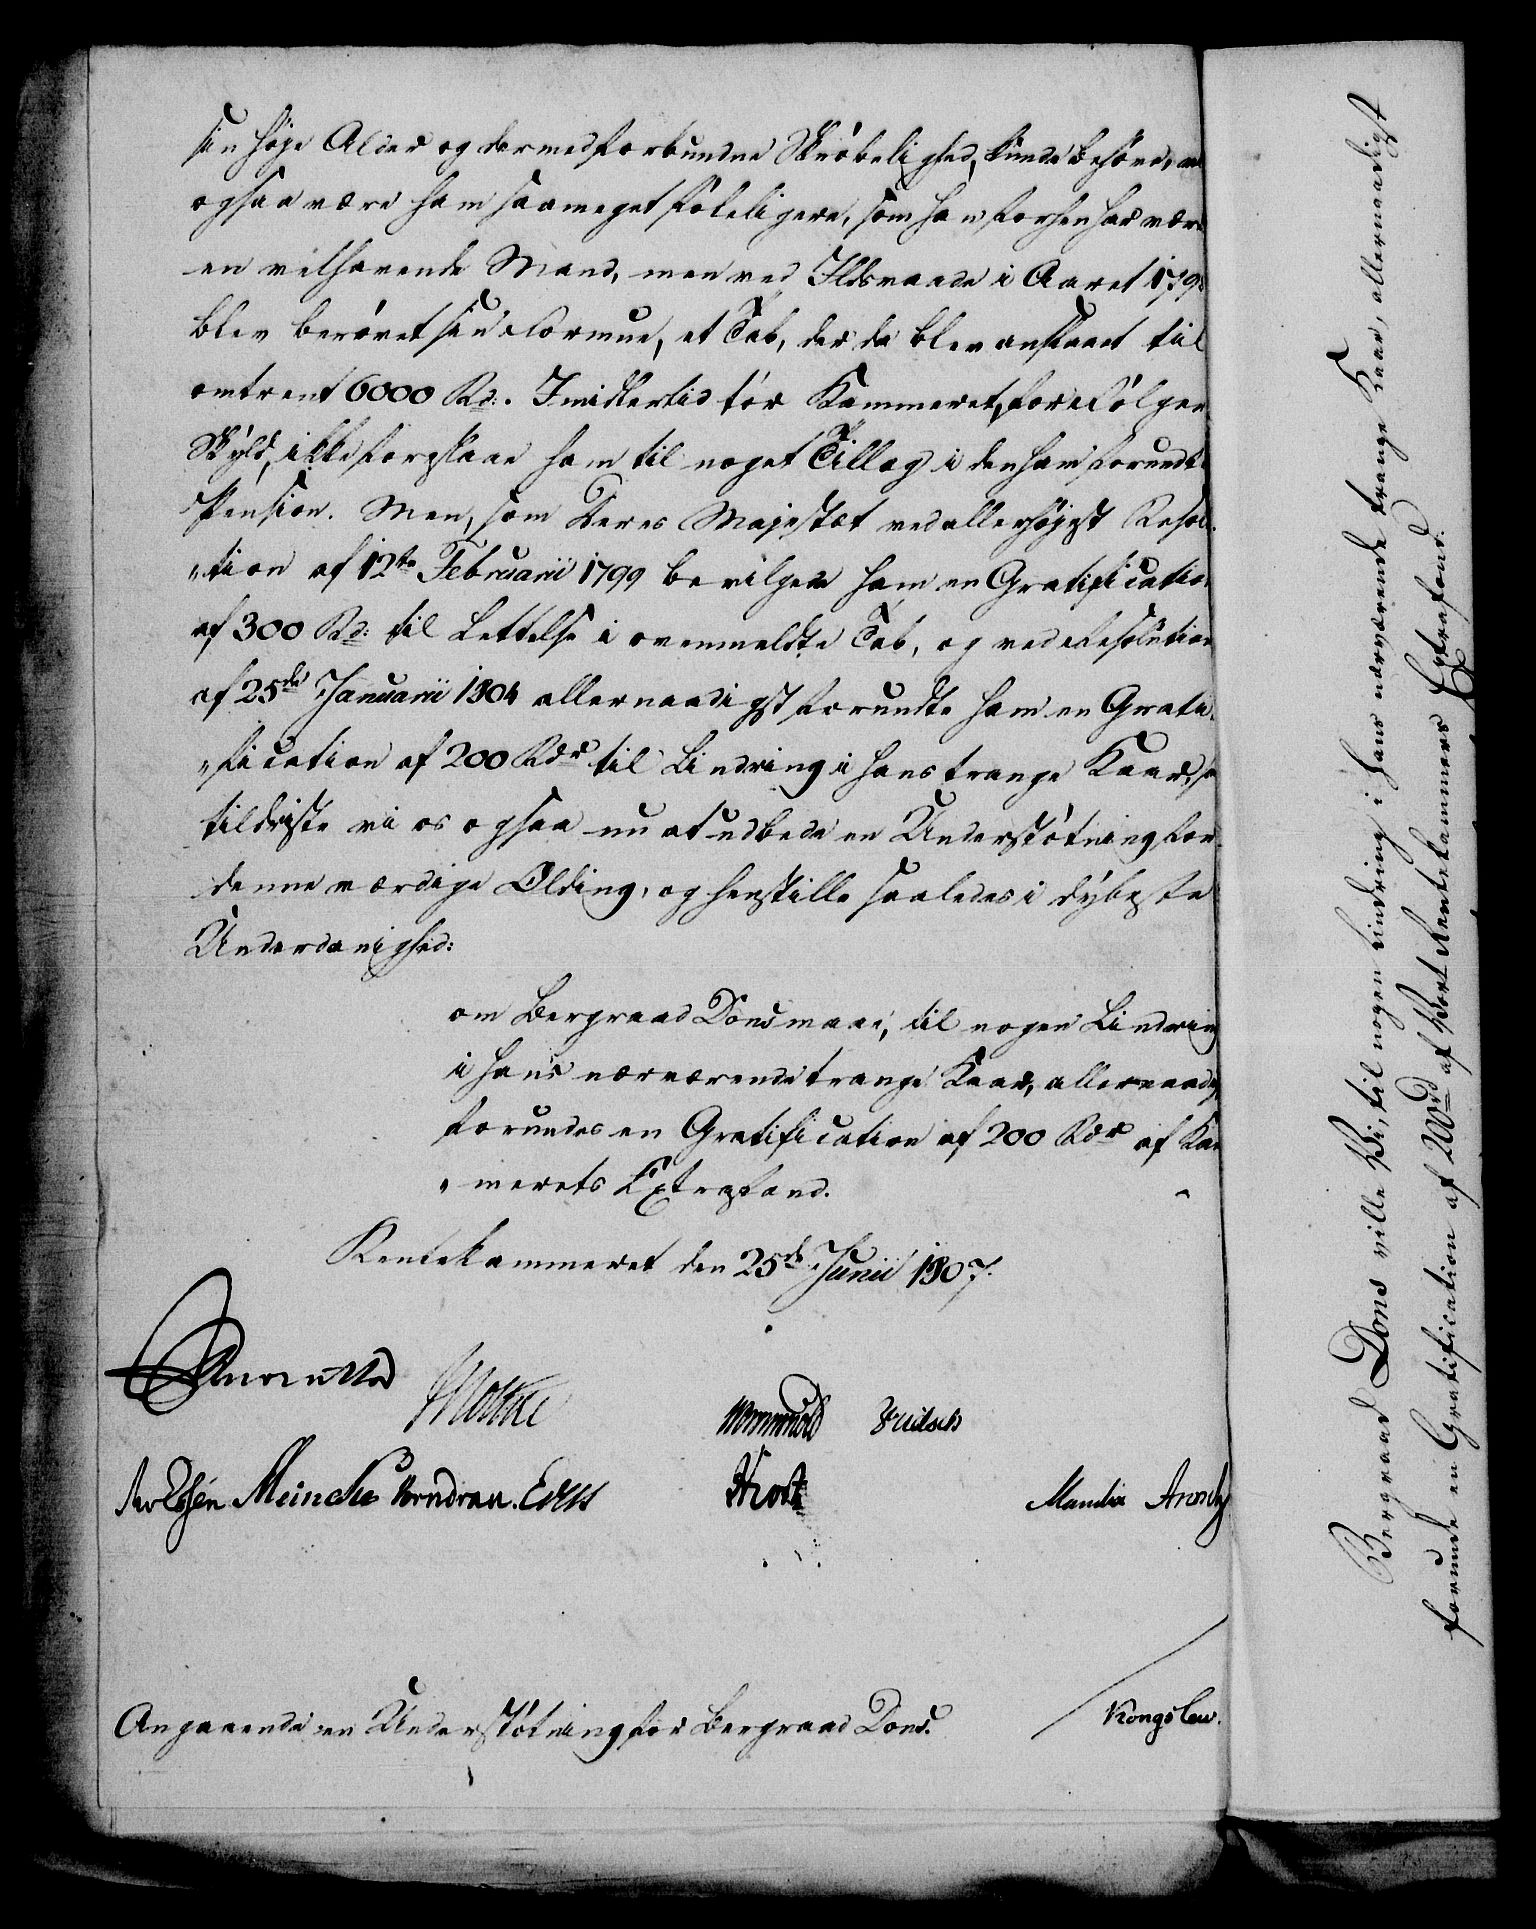 sin høye Alder og dermed forbundne Skrøbelighed, kunde behøve, 
ogsaa være ham saameget føleligere, som han forhen har vær
en velhavende Mand, men ved Ildsvaade i Aaret 179
blev berøvet sin Formue, et Tab, der da blev anslaaet til
omtrent 6000 Rd:. Imidlertid tør Kammeret, for Følgers
Skyld, ikke foreslaae ham til noget Tillæg i den ham forundte
Pension. Men, som Deres Majestæt ved allerhøyest Resolu-
„tion af 12te Februarii 1799 bevilgede ham en Gratification
af 300 Rd: til Lettelse i ovenmeldte Tab, og ved Resolution
af 25de Januarii 1804 allernaadigst forundte ham en Grati-
„fication af 200 Rdr til Lindring i hans trange Kaar, saa
tildriste vi os ogsaa nu at udbede en Understøtning for
denne værdige Olding, og henstille saaledes i dybeste
Underdanighed:
om Bergraad Dons maae, til nogen Lindring
i hans nærværende trange Kaar, allernaadigst
forundes en Gratification af 200 Rdr af Kam
„merets Extrafond.
Rentekammeret den 25de Junii 1807.
Reventlow
Moltke
Wormskiold Fridsch
Meincke Worndran. Evers
Hrost
Manthei
Angaaende en Understøtning for Bergraad Dons.
Kongslew.
Bergraad Dons ville Vi, til nogen Lindring i hans nærværende trange Kaar, allernaadigst
forunde en Gratification af 200rd af Vort Rentekammers Extrafond.